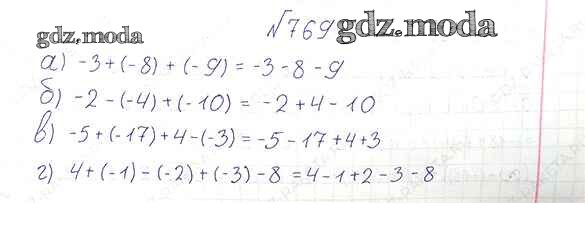 №769 gdz.moda
gdz.moda
а) -3+(-8)+(-9)=-3-8-9
б) -2-(-4)+(-10)=-2+4-10
в) -5+(-17)+4-(-3)=-5-17+4+3
г) 4+(-1)-(-2)+(-3)-8=4-1+2-3-8